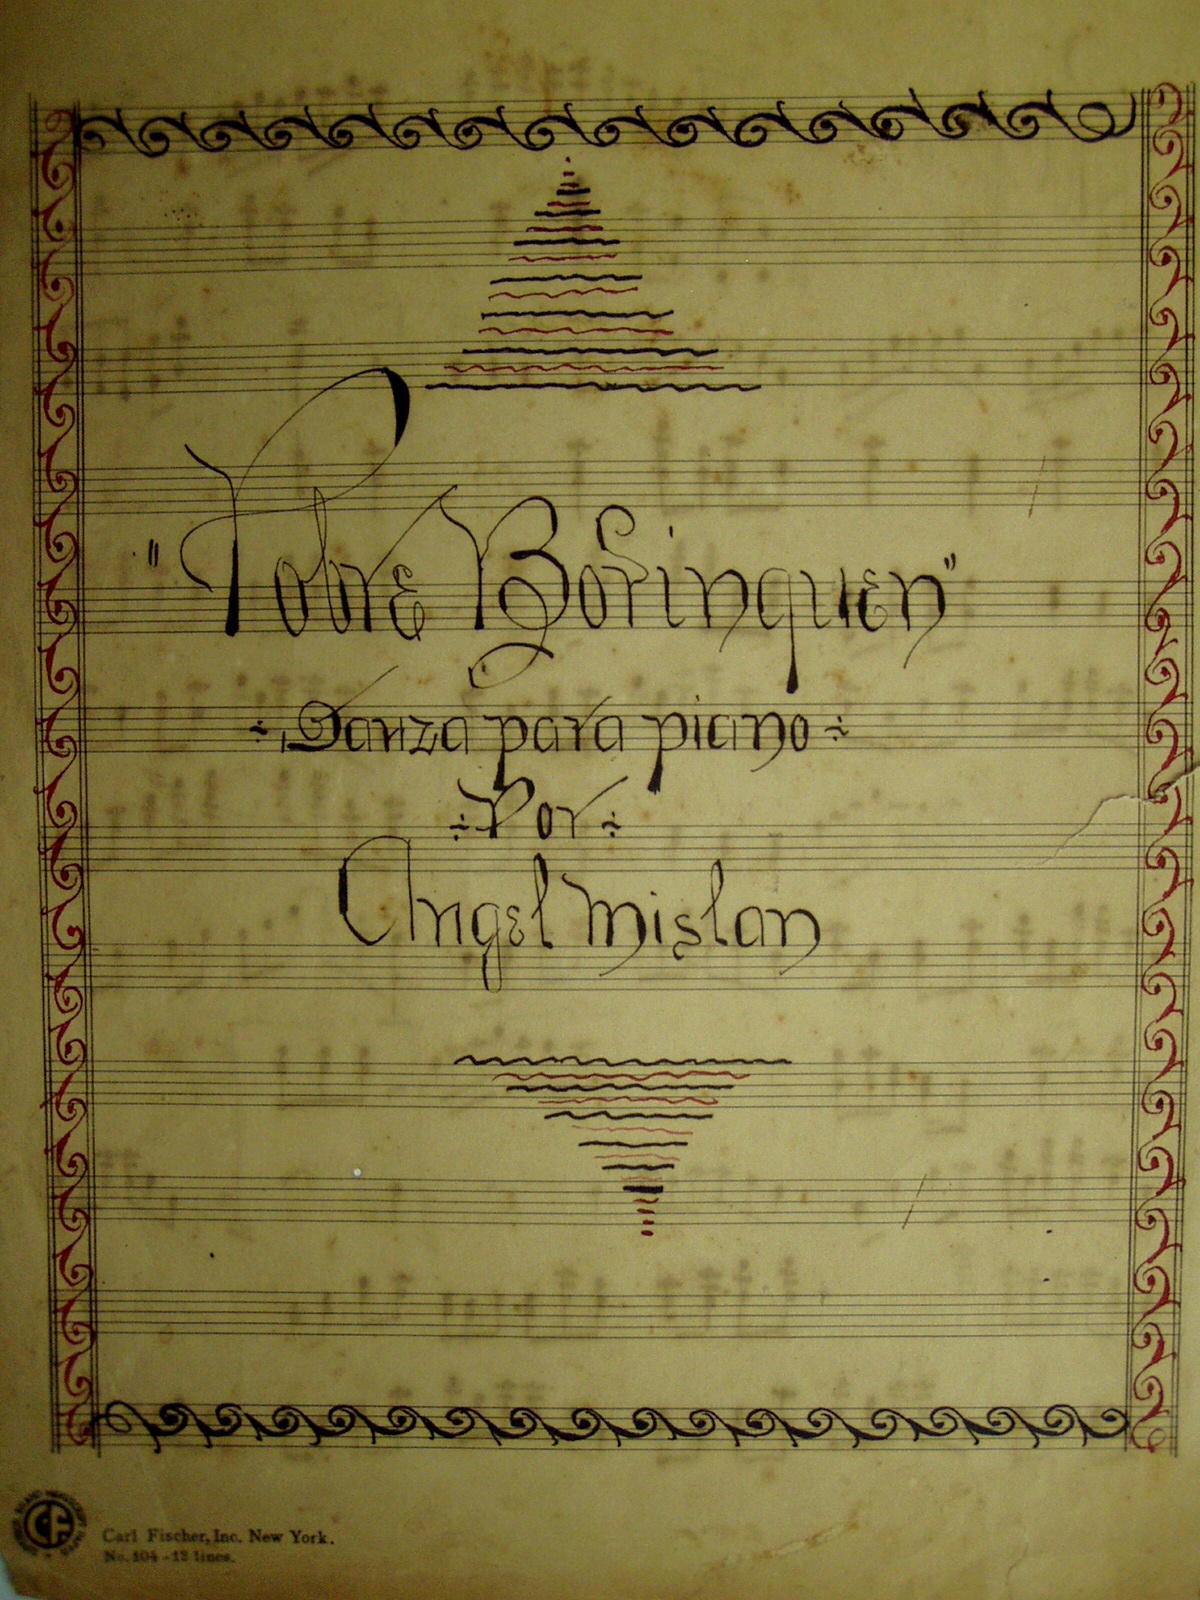 "Pobre Borinquen"
÷ Danza para piano ÷
÷ Por ÷
Angel Mislan
CF
Carl Fischer, Inc. New York.
No. 104 - 12 lines.